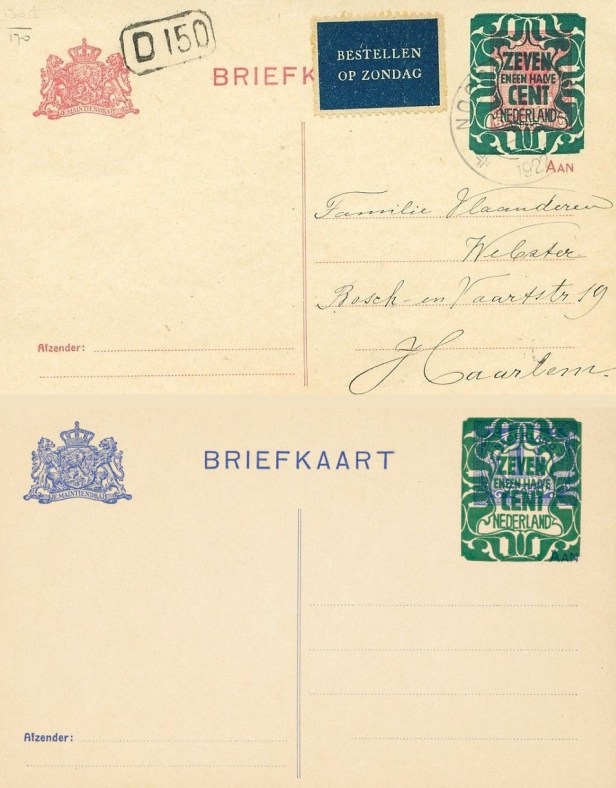 D 150
BESTELLEN
OP ZONDAG
BRIEFK
ZEVEN
EN EEN HALVE
CENT
NEDERLAND
JE MAINTIENDRAI
AAN
Familie Vlaanderen
Welster
Bosch- en Vaartstr 19
Haarlem.
Afzender:
BRIEFKAART
ZEVEN
EN EEN HALVE
CENT
NEDERLAND
JE MAINTIENDRAI
AAN
Afzender: